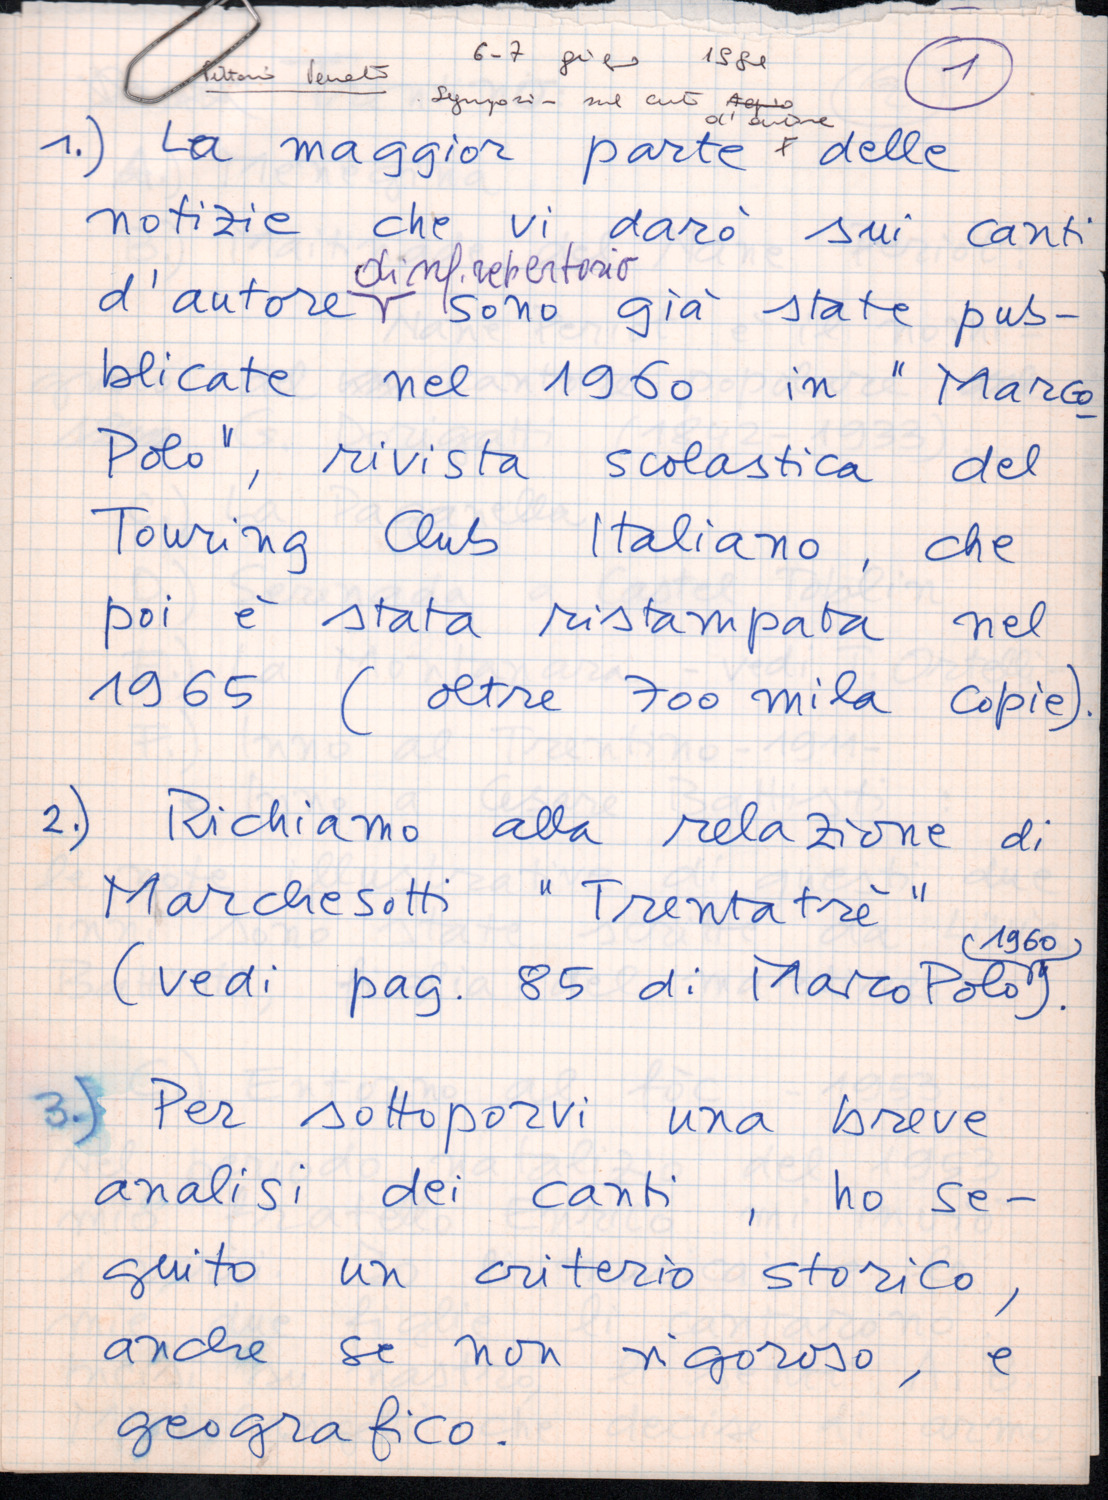 6-7 giugno
Vittorio Veneto
sul canto
d'autore
1
1.) La maggior parte delle
notizie che vi darò sui canti
di ns. repertorio
d'autore sono già state pub-
blicate nel 1960 in "Marco
Polo", rivista scolastica del
Touring Club Italiano, che
poi è stata ristampata nel
1965 (oltre 700 mila copie).
2.) Richiamo alla relazione di
Marchesotti "Trentatrè"
(1960)
(vedi pag. 85 di Marco Polo").
3.) Per sottoporvi una breve
analisi dei canti, ho se-
guito un criterio storico,
anche se non rigoroso, e
geografico.